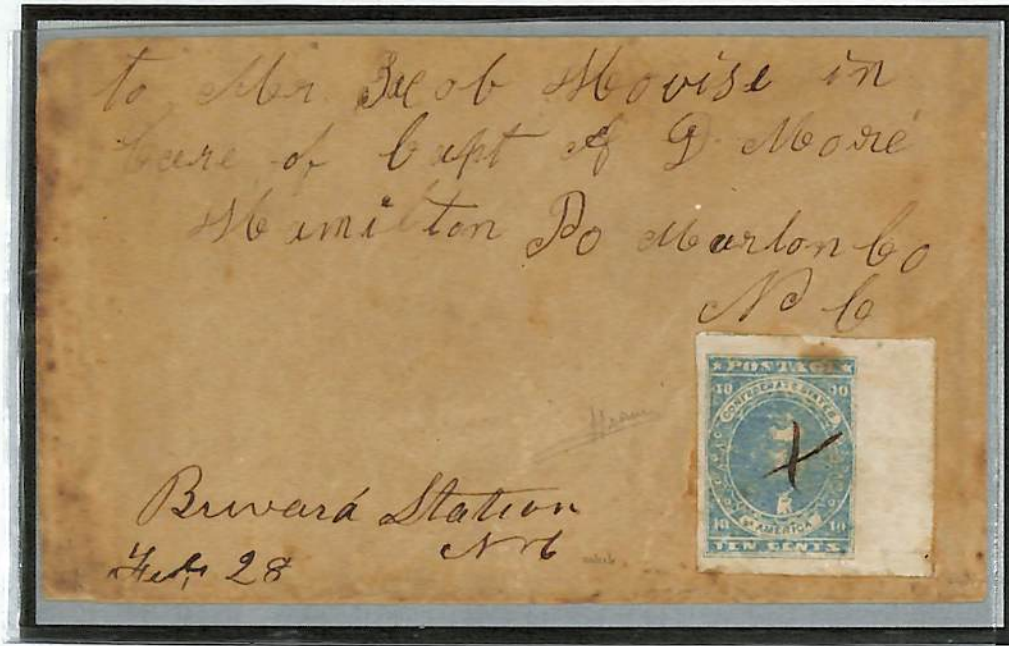 to Mr. Jacob Hovise in
Care of Capt A D. Moore
Hamilton Po Marton Co
N C
POSTAGE
10 10
CONFEDERATE STATES
OF AMERICA
10 10
TEN CENTS
X
Brevard Station
N C
Feb, 28